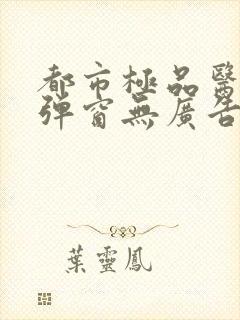 都市極品醫
彈窗無廣告
葉靈鳳